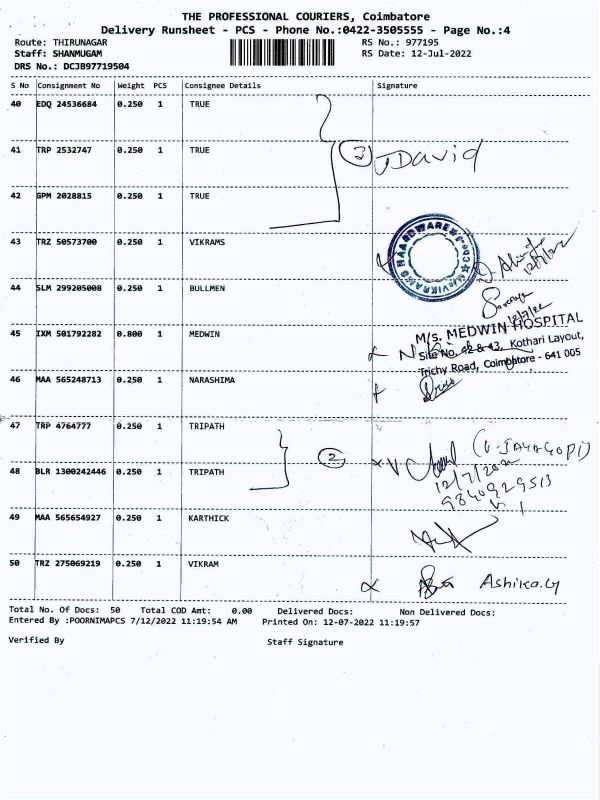 THE PROFESSIONAL COURIERS, Coimbatore
Delivery Runsheet - PCS - Phone No.:0422-3505555 - Page No.:4
Route: THIRUNAGAR RS No.: 977195
Staff: SHANMUGAM RS Date: 12-Jul-2022
DRS No.: DCJB97719504
S No Consignment No Weight PCS Consignee Details Signature
40 EDQ 24536684 0.250 1 TRUE
41 TRP 2532747 0.250 1 TRUE 3 J David
42 GPM 2028815 0.250 1 TRUE
43 TRZ 50573700 0.250 1 VIKRAMS
12/7/22
44 SLM 299205008 0.250 1 BULLMEN
12/7/22
M/s. MEDWIN HOSPITAL
45 IXM 501792282 0.800 1 MEDWIN Site No. 42 & 43, Kothari Layout,
Trichy Road, Coimbatore - 641 005
46 MAA 565248713 0.250 1 NARASHIMA
47 TRP 4764777 0.250 1 TRIPATH
2 (V. JAYAGOPI)
48 BLR 1300242446 0.250 1 TRIPATH
9840929513
49 MAA 565654927 0.250 1 KARTHICK
50 TRZ 275069219 0.250 1 VIKRAM Ashika.G
Total No. Of Docs: 50 Total COD Amt: 0.00 Delivered Docs: Non Delivered Docs:
Entered By :POORNIMAPCS 7/12/2022 11:19:54 AM Printed On: 12-07-2022 11:19:57
Verified By Staff Signature